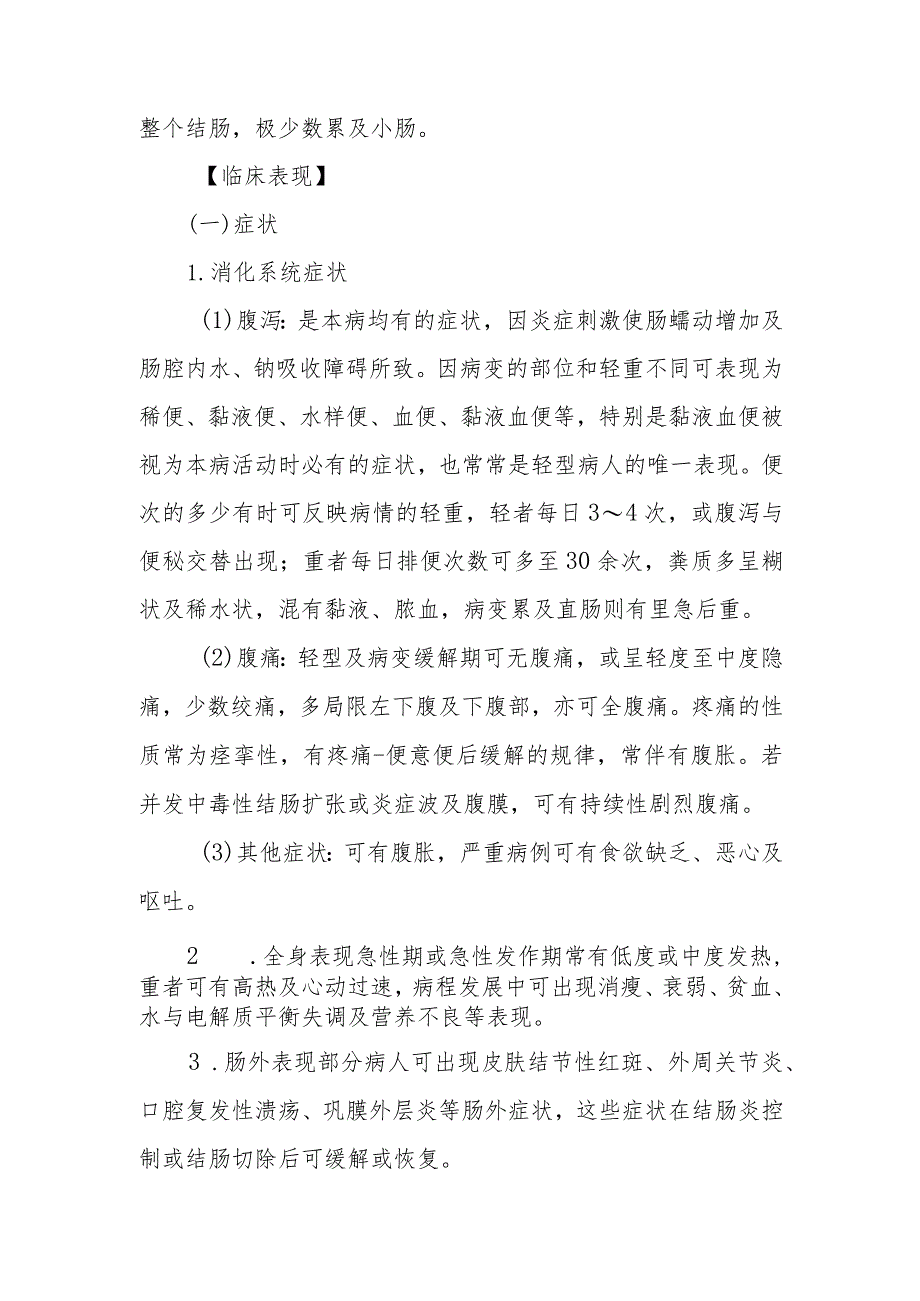 整个结肠，极少数累及小肠。
【临床表现】
(一)症状
1.消化系统症状
(1)腹泻：是本病均有的症状，因炎症刺激使肠蠕动增加及
肠腔内水、钠吸收障碍所致。因病变的部位和轻重不同可表现为
稀便、黏液便、水样便、血便、黏液血便等，特别是黏液血便被
视为本病活动时必有的症状，也常常是轻型病人的唯一表现。便
次的多少有时可反映病情的轻重，轻者每日3～4次，或腹泻与
便秘交替出现；重者每日排便次数可多至30余次，粪质多呈糊
状及稀水状，混有黏液、脓血，病变累及直肠则有里急后重。
(2)腹痛：轻型及病变缓解期可无腹痛，或呈轻度至中度隐
痛，少数绞痛，多局限左下腹及下腹部，亦可全腹痛。疼痛的性
质常为痉挛性，有疼痛-便意便后缓解的规律，常伴有腹胀。若
并发中毒性结肠扩张或炎症波及腹膜，可有持续性剧烈腹痛。
(3)其他症状：可有腹胀，严重病例可有食欲缺乏、恶心及
呕吐。
2 .全身表现急性期或急性发作期常有低度或中度发热，
重者可有高热及心动过速，病程发展中可出现消瘦、衰弱、贫血、
水与电解质平衡失调及营养不良等表现。
3 .肠外表现部分病人可出现皮肤结节性红斑、外周关节炎、
口腔复发性溃疡、巩膜外层炎等肠外症状，这些症状在结肠炎控
制或结肠切除后可缓解或恢复。